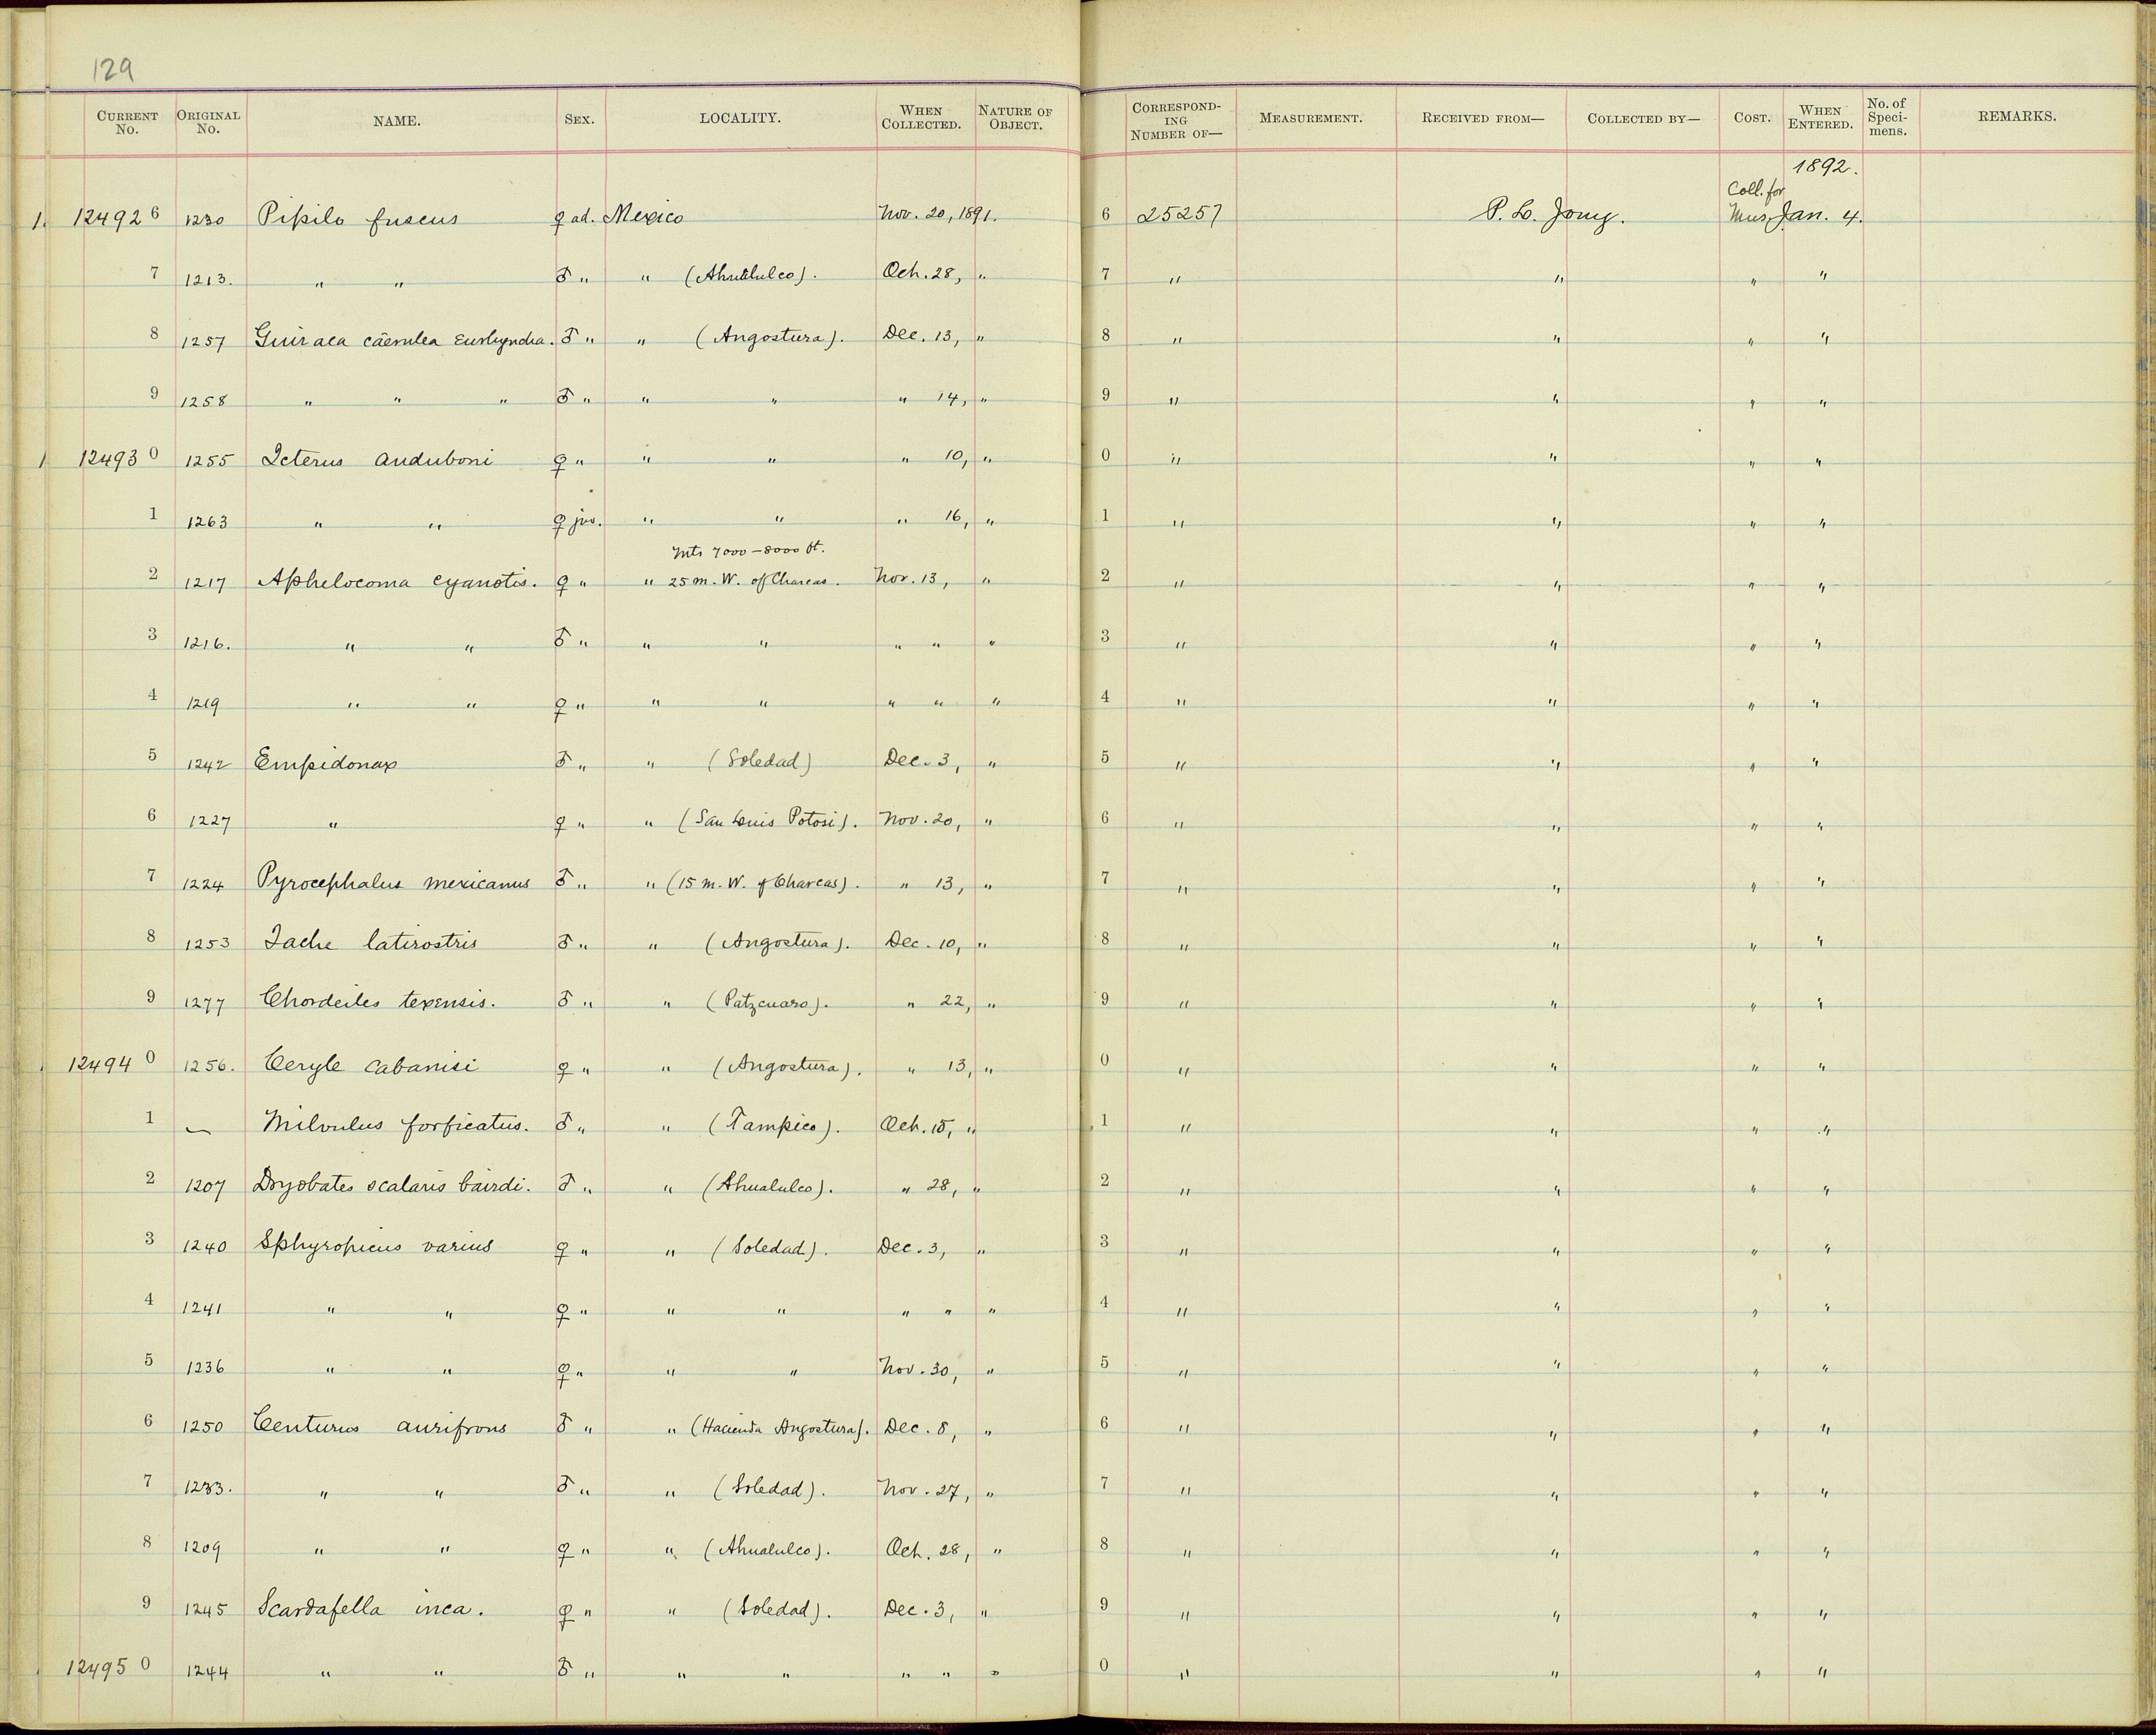 129
CURRENT No. ORIGINAL No. NAME. SEX. LOCALITY. WHEN COLLECTED. NATURE OF OBJECT. CORRESPONDING NUMBER OF— MEASUREMENT. RECEIVED FROM— COLLECTED BY— COST. WHEN ENTERED. No. of Specimens. REMARKS.
1892.
Coll. for
1. 12492 6 1230 Pipilo fuscus ♀ ad. Mexico Nov. 20, 1891. 6 25257 P. L. Jouy. Mus. Jan. 4.
7 1213. " " ♂ " " (Ahualulco). Oct. 28, " 7 " " " "
8 1257 Guiraca caerulea eurhyncha. ♂ " " (Angostura). Dec. 13, " 8 " " " "
9 1258 " " " ♂ " " " " 14, " 9 " " " "
1 12493 0 1255 Icterus auduboni ♀ " " " " 10, " 0 " " " "
1 1263 " " ♀ juv. " " " 16, " 1 " " " "
Mts 7000–8000 ft.
2 1217 Aphelocoma cyanotis. ♀ " " 25 m. W. of Charcas. Nov. 13, " 2 " " " "
3 1216. " " ♂ " " " " " " 3 " " " "
4 1219 " " ♀ " " " " " " 4 " " " "
5 1242 Empidonax ♂ " " (Soledad) Dec. 3, " 5 " " " "
6 1227 " ♀ " " (San Luis Potosi). Nov. 20, " 6 " " " "
7 1224 Pyrocephalus mexicanus ♂ " " (15 m. W. of Charcas). " 13, " 7 " " " "
8 1253 Iache latirostris ♂ " " (Angostura). Dec. 10, " 8 " " " "
9 1277 Chordeiles texensis. ♂ " " (Patzcuaro). " 22, " 9 " " " "
12494 0 1256. Ceryle cabanisi ♀ " " (Angostura). " 13, " 0 " " " "
1 — Milvulus forficatus. ♂ " " (Tampico). Oct. 15, " 1 " " " "
2 1207 Dryobates scalaris bairdi. ♂ " " (Ahualulco). " 28, " 2 " " " "
3 1240 Sphyropicus varius ♀ " " (Soledad). Dec. 3, " 3 " " " "
4 1241 " " ♀ " " " " " " 4 " " " "
5 1236 " " ♀ " " " Nov. 30, " 5 " " " "
6 1250 Centurus aurifrons ♂ " " (Hacienda Angostura). Dec. 8, " 6 " " " "
7 1233. " " ♂ " " (Soledad). Nov. 27, " 7 " " " "
8 1209 " " ♀ " " (Ahualulco). Oct. 28, " 8 " " " "
9 1245 Scardafella inca. ♀ " " (Soledad). Dec. 3, " 9 " " " "
12495 0 1244 " " ♂ " " " " " " 0 " " " "